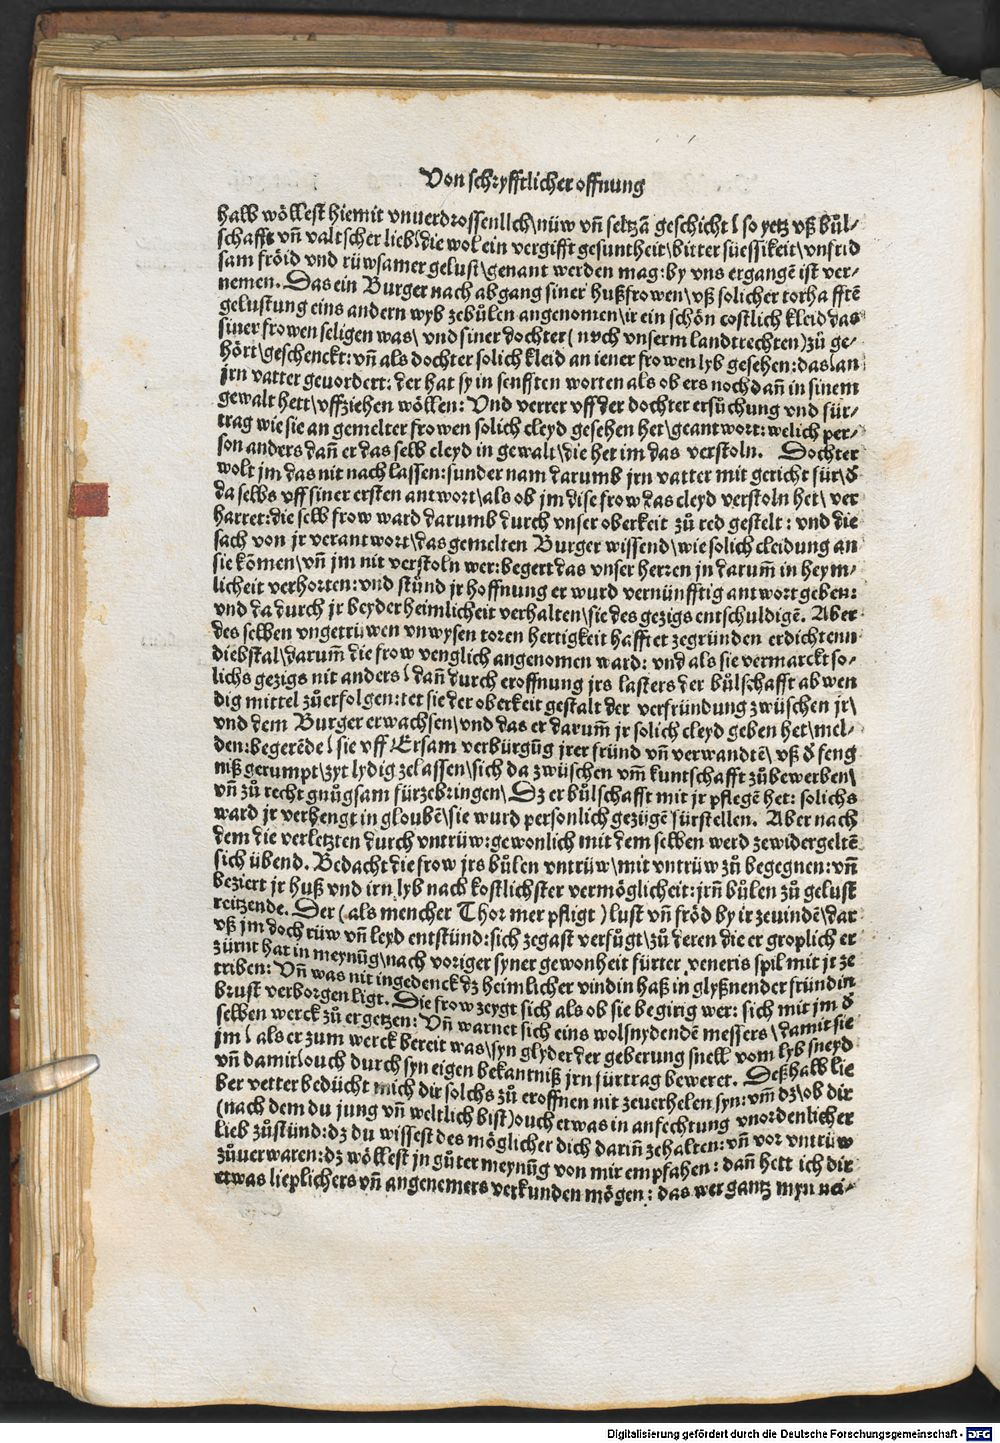 Von schryfftlicher offnung
halb wöllest hiemit vnuerdrossenlich\nüw vñ seltzã geschicht\so yetz vß bůl-
schafft vñ valtscher lieb\die wol ein vergifft gesuntheit\bitter süessikeit\vnfrid
sam fröid vnd rüwsamer gelust\genant werden mag: by vns ergangẽ ist ver-
nemen. Das ein Burger nach abgang siner hußfrowen\vß solicher torhafftẽ
gelustung eins andern wyb zebůlen angenomen\ir ein schön costlich kleid das
siner frowen seligen was\ vnd siner dochter (noch vnserm landtrechten) zů ge-
hört\geschenckt: vñ als dochter solich kleid an iener frowen lyb gesehen: das\an
jrn vatter geuordert: der hat sy in senfften worten als ob ers noch dañ in sinem
gewalt hett\vffziehen wöllen: Vnd verrer vff der dochter ersůchung vnd für-
trag wie sie an gemelter frowen solich cleyd gesehen het\geantwort: welich per-
son anders dañ er das selb cleyd in gewalt\die het im das verstoln. Dochter
wolt jm das nit nach lassen: sunder nam darumb jrn vatter mit gericht für\d̄
da selbs vff siner ersten antwort\als ob jm dise frow das cleyd verstoln het\ ver
harret: die selb frow ward darumb durch vnser oberkeit zů red gestelt: vnd die
sach von jr verantwort\das gemelten Burger wissend\wie solich cleidung an
sie kõmen\vñ jm nit verstoln wer: begert das vnser herren jn darum̃ in heym-
licheit verhorten: vnd stůnd jr hoffnung er wurd vernünfftig antwort geben:
vnd da durch jr beyder heimlicheit verhalten\sie des gezigs entschuldigẽ. Aber
des selben vngetrüwen vnwysen toren hertigkeit hafftet zegründen erdichtenn
diebstal\darum̃ die frow venglich angenomen ward: vnd als sie vermarckt so-
lichs gezigs nit anders\dañ durch eroffnung jrs lasters der bůlschafft ab wen
dig mittel zůerfolgen: tet sie der oberkeit gestalt der verfründung zwüschen jr\
vnd dem Burger erwachsen\vnd das er darum̃ jr solich cleyd geben het\mel-
den: begerẽde\sie vff Ersam verbürgũg jrer fründ vñ verwandtẽ\ vß d̄ feng
niß gerumpt\zyt lydig zelassen\sich da zwüschen vm̃ kuntschafft zůbewerben\
vñ zů recht gnůgsam fürzebringen\ Dz er bůlschafft mit jr pflegẽ het: solichs
ward jr verhengt in gloubẽ\sie wurd personlich gezügẽ fürstellen. Aber nach
dem die verletzten durch vntrüw: gewonlich mit dem selben werd zewidergeltẽ
sich übend. Bedacht die frow jrs bůlen vntrüw\mit vntrüw zů begegnen: vñ
beziert jr huß vnd irn lyb nach kostlichster vermöglicheit: jrñ bůlen zů gelust
reitzende. Der (als mencher Thor mer pfligt) lust vñ fröd by ir zeuindẽ\dar
vß jm doch rüw vñ leyd entstünd: sich zegast verfůgt\zů deren die er groplich er
zürnt hat in meynũg\nach voriger syner gewonheit fürter veneris spil mit jr ze
triben: Vñ was nit ingedenck dz heimlicher vindin haß in glyßnender fründin
brust verborgen ligt. Die frow zeygt sich als ob sie begirig wer: sich mit jm d̄
selben werck zů ergetzen: Vñ warnet sich eins wolsnydendẽ messers\damit sie
jm\als er zum werck bereit was\syn glyder der geberung snell vom lyb sneyd
vñ damit\ouch durch syn eigen bekantniß jrn fürtrag beweret. Deßhalb lie
ber vetter bedücht mich dir solchs zů eroffnen nit zeuerhelen syn: vm̃ dz\ob dir
(nach dem du jung vñ weltlich bist) ouch etwas in anfechtung vnordenlicher
lieb zůstünd: dz du wissest des möglicher dich dariñ zehalten: vñ vor vntrüw
zůuerwaren: dz wöllest jn gůter meynũg von mir empfahen: dañ hett ich dir
etwas lieplichers vñ angenemers verkunden mögen: das wer gantz myn nei-
Digitalisierung gefördert durch die Deutsche Forschungsgemeinschaft - DFG